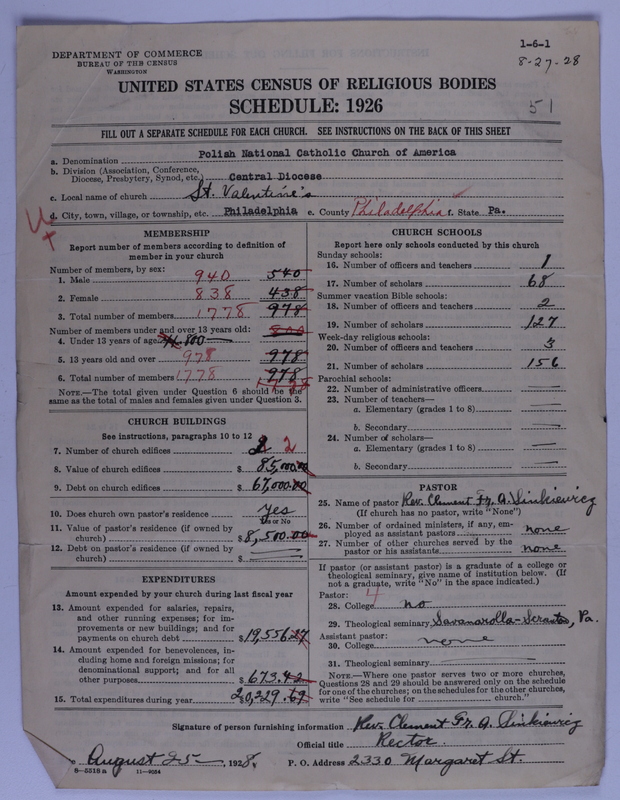 DEPARTMENT OF COMMERCE
BUREAU OF THE CENSUS
WASHINGTON
1-6-1
8-27-28
UNITED STATES CENSUS OF RELIGIOUS BODIES
SCHEDULE: 1926
51
FILL OUT A SEPARATE SCHEDULE FOR EACH CHURCH. SEE INSTRUCTIONS ON THE BACK OF THIS SHEET
a. Denomination Polish National Catholic Church of America
b. Division (Association, Conference, Diocese, Presbytery, Synod, etc.) Central Diocese
c. Local name of church St. Valentine's
d. City, town, village, or township, etc. Philadelphia e. County Philadelphia f. State Pa.
MEMBERSHIP
Report number of members according to definition of
member in your church
Number of members, by sex:
1. Male 940 540
2. Female 838 438
3. Total number of members 1778 978
Number of members under and over 13 years old: 800
4. Under 13 years of age 800
5. 13 years old and over 978 978
6. Total number of members 1778 978
1778
NOTE.—The total given under Question 6 should be the
same as the total of males and females given under Question 3.
CHURCH BUILDINGS
See instructions, paragraphs 10 to 12
7. Number of church edifices 2 2
8. Value of church edifices $ 85,000.00
9. Debt on church edifices $ 67,000.00
10. Does church own pastor's residence Yes
Yes or No
11. Value of pastor's residence (if owned by
church) $ 8,500.00
12. Debt on pastor's residence (if owned by
church) $ —
EXPENDITURES
Amount expended by your church during last fiscal year
13. Amount expended for salaries, repairs,
and other running expenses; for im-
provements or new buildings; and for
payments on church debt $ 19,556.27
14. Amount expended for benevolences, in-
cluding home and foreign missions; for
denominational support; and for all
other purposes $ 673.42
15. Total expenditures during year $ 20,229.69
CHURCH SCHOOLS
Report here only schools conducted by this church
Sunday schools:
16. Number of officers and teachers 1
17. Number of scholars 68
Summer vacation Bible schools:
18. Number of officers and teachers 2
19. Number of scholars 127
Week-day religious schools:
20. Number of officers and teachers 3
21. Number of scholars 156
Parochial schools:
22. Number of administrative officers —
23. Number of teachers—
a. Elementary (grades 1 to 8) —
b. Secondary —
24. Number of scholars—
a. Elementary (grades 1 to 8) —
b. Secondary —
PASTOR
25. Name of pastor Rev. Clement Fr. A. Sinkiewicz
(If church has no pastor, write "None")
26. Number of ordained ministers, if any, em-
ployed as assistant pastors none
27. Number of other churches served by the
pastor or his assistants none
If pastor (or assistant pastor) is a graduate of a college or
theological seminary, give name of institution below. (If
not a graduate, write "No" in the space indicated.)
Pastor: 4
28. College no
29. Theological seminary Savanarolla-Scranton, Pa.
Assistant pastor:
30. College none
31. Theological seminary
NOTE.—Where one pastor serves two or more churches,
Questions 28 and 29 should be answered only on the schedule
for one of the churches; on the schedules for the other churches,
write "See schedule for church."
Signature of person furnishing information Rev. Clement Fr. A. Sinkiewicz
Official title Rector
August 25 —, 1928. P. O. Address 2330 Margaret St.
8—5518a 11—9054